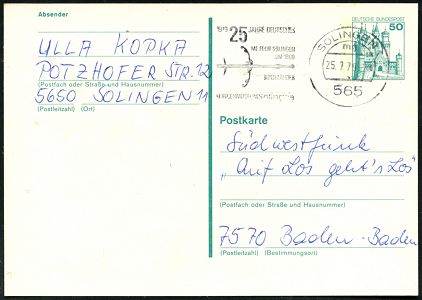 Absender
ULLA KOPKA
POTZHOFER STR. 12
(Postfach oder Straße und Hausnummer)
5650 SOLINGEN 11
(Postleitzahl) (Ort)
25 JAHRE DEUTSCHES
SOLINGEN
25.7.79
565
DEUTSCHE BUNDESPOST
50
Postkarte
Südwestfunk
„Auf Los geht's Los"
(Postfach oder Straße und Hausnummer)
7570 Baden-Baden
(Postleitzahl) (Bestimmungsort)